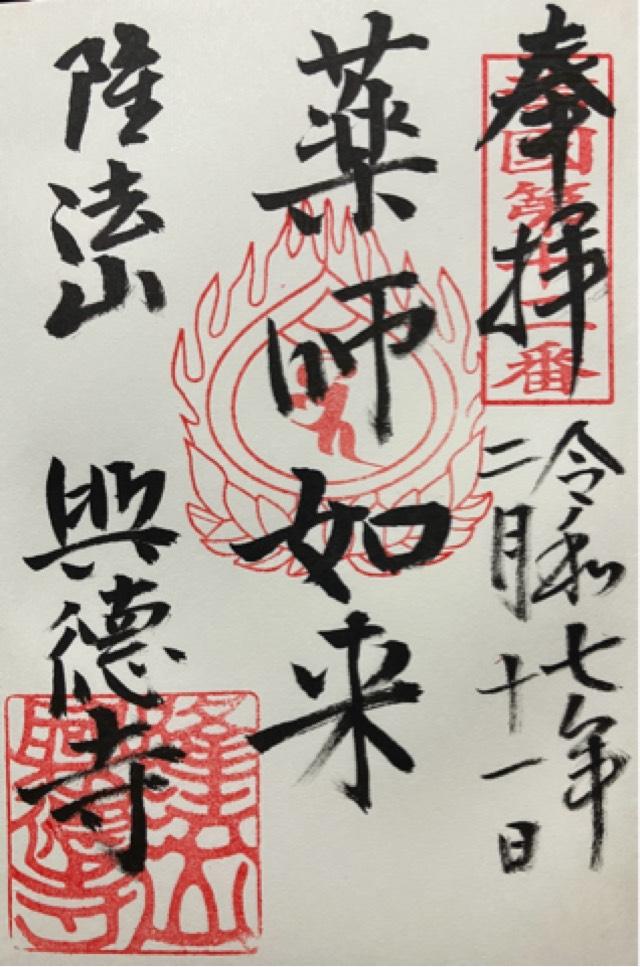 奉拝
國第十番
令和七年
二月十一日
薬師如来
隆法山 興徳寺